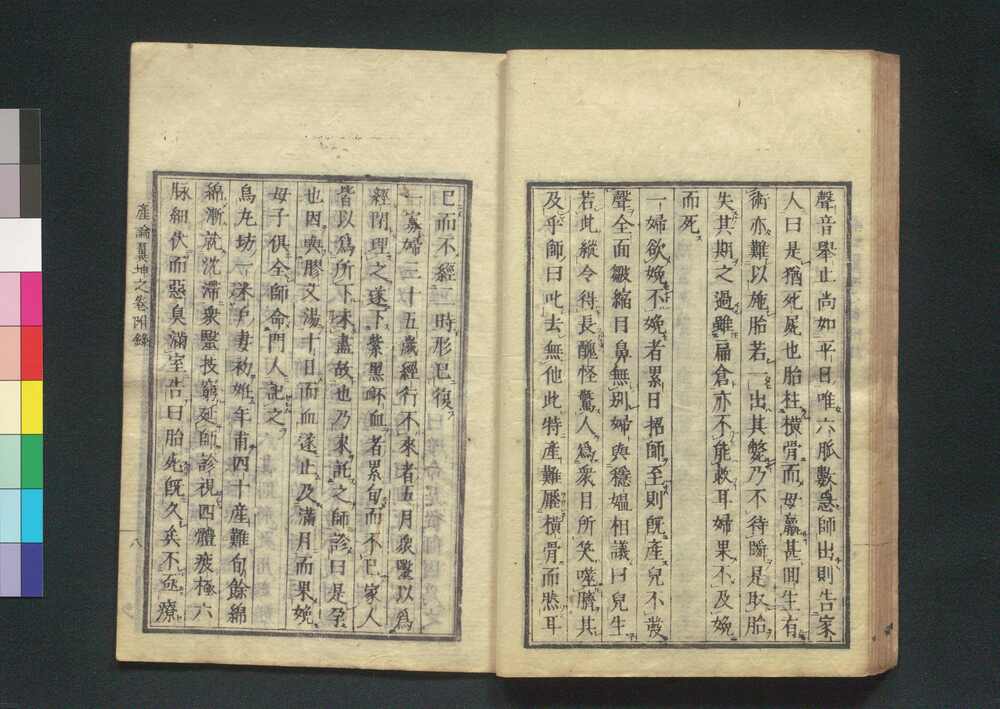 聲音舉止尚如平日唯六脈數急師出則告家
人曰是猶死屍也胎柱橫骨而母羸甚間生有
術亦難以施胎若一出其斃乃不待瞬是取胎
失其期之過雖扁倉亦不能救耳婦果不及娩
而死
一婦欲娩不娩者累日招師至則既產兒不發
聲全面皺縮目鼻無別婦與穩媼相議曰兒生
若此縱令得長醜怪驚人為眾目所笑噬臍其
及乎師曰叱去無他此特產難壓橫骨而然耳
已而不經二時形已復
一寡婦三十五歲經行不來者五月眾醫以為
經閉理之遂下紫黑衃血者累旬而不已家人
皆以為所下未盡故也乃來託之師診曰是孕
也因與膠艾湯十日而血遂止及滿月而果娩
母子俱全師命門人記之
烏丸坊一米戶妻初姙年甫四十產難旬餘綿
綿漸就沈滯衆醫技窮延師診視四體疲極六
脉細伏而惡臭滿室告曰胎死既久矣不亟療
產論翼坤之卷附錄
八